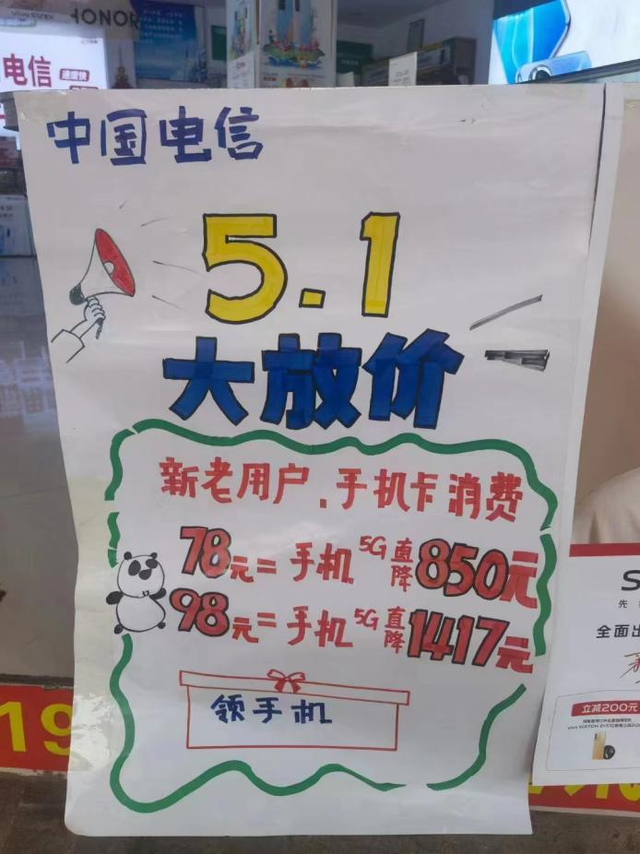 HONOR
电信
速度快
中国电信
5.1
大放价
新老用户、手机卡消费
78元=手机 5G直降850元
98元=手机 5G直降1417元
领手机
全面出
立减200元
19